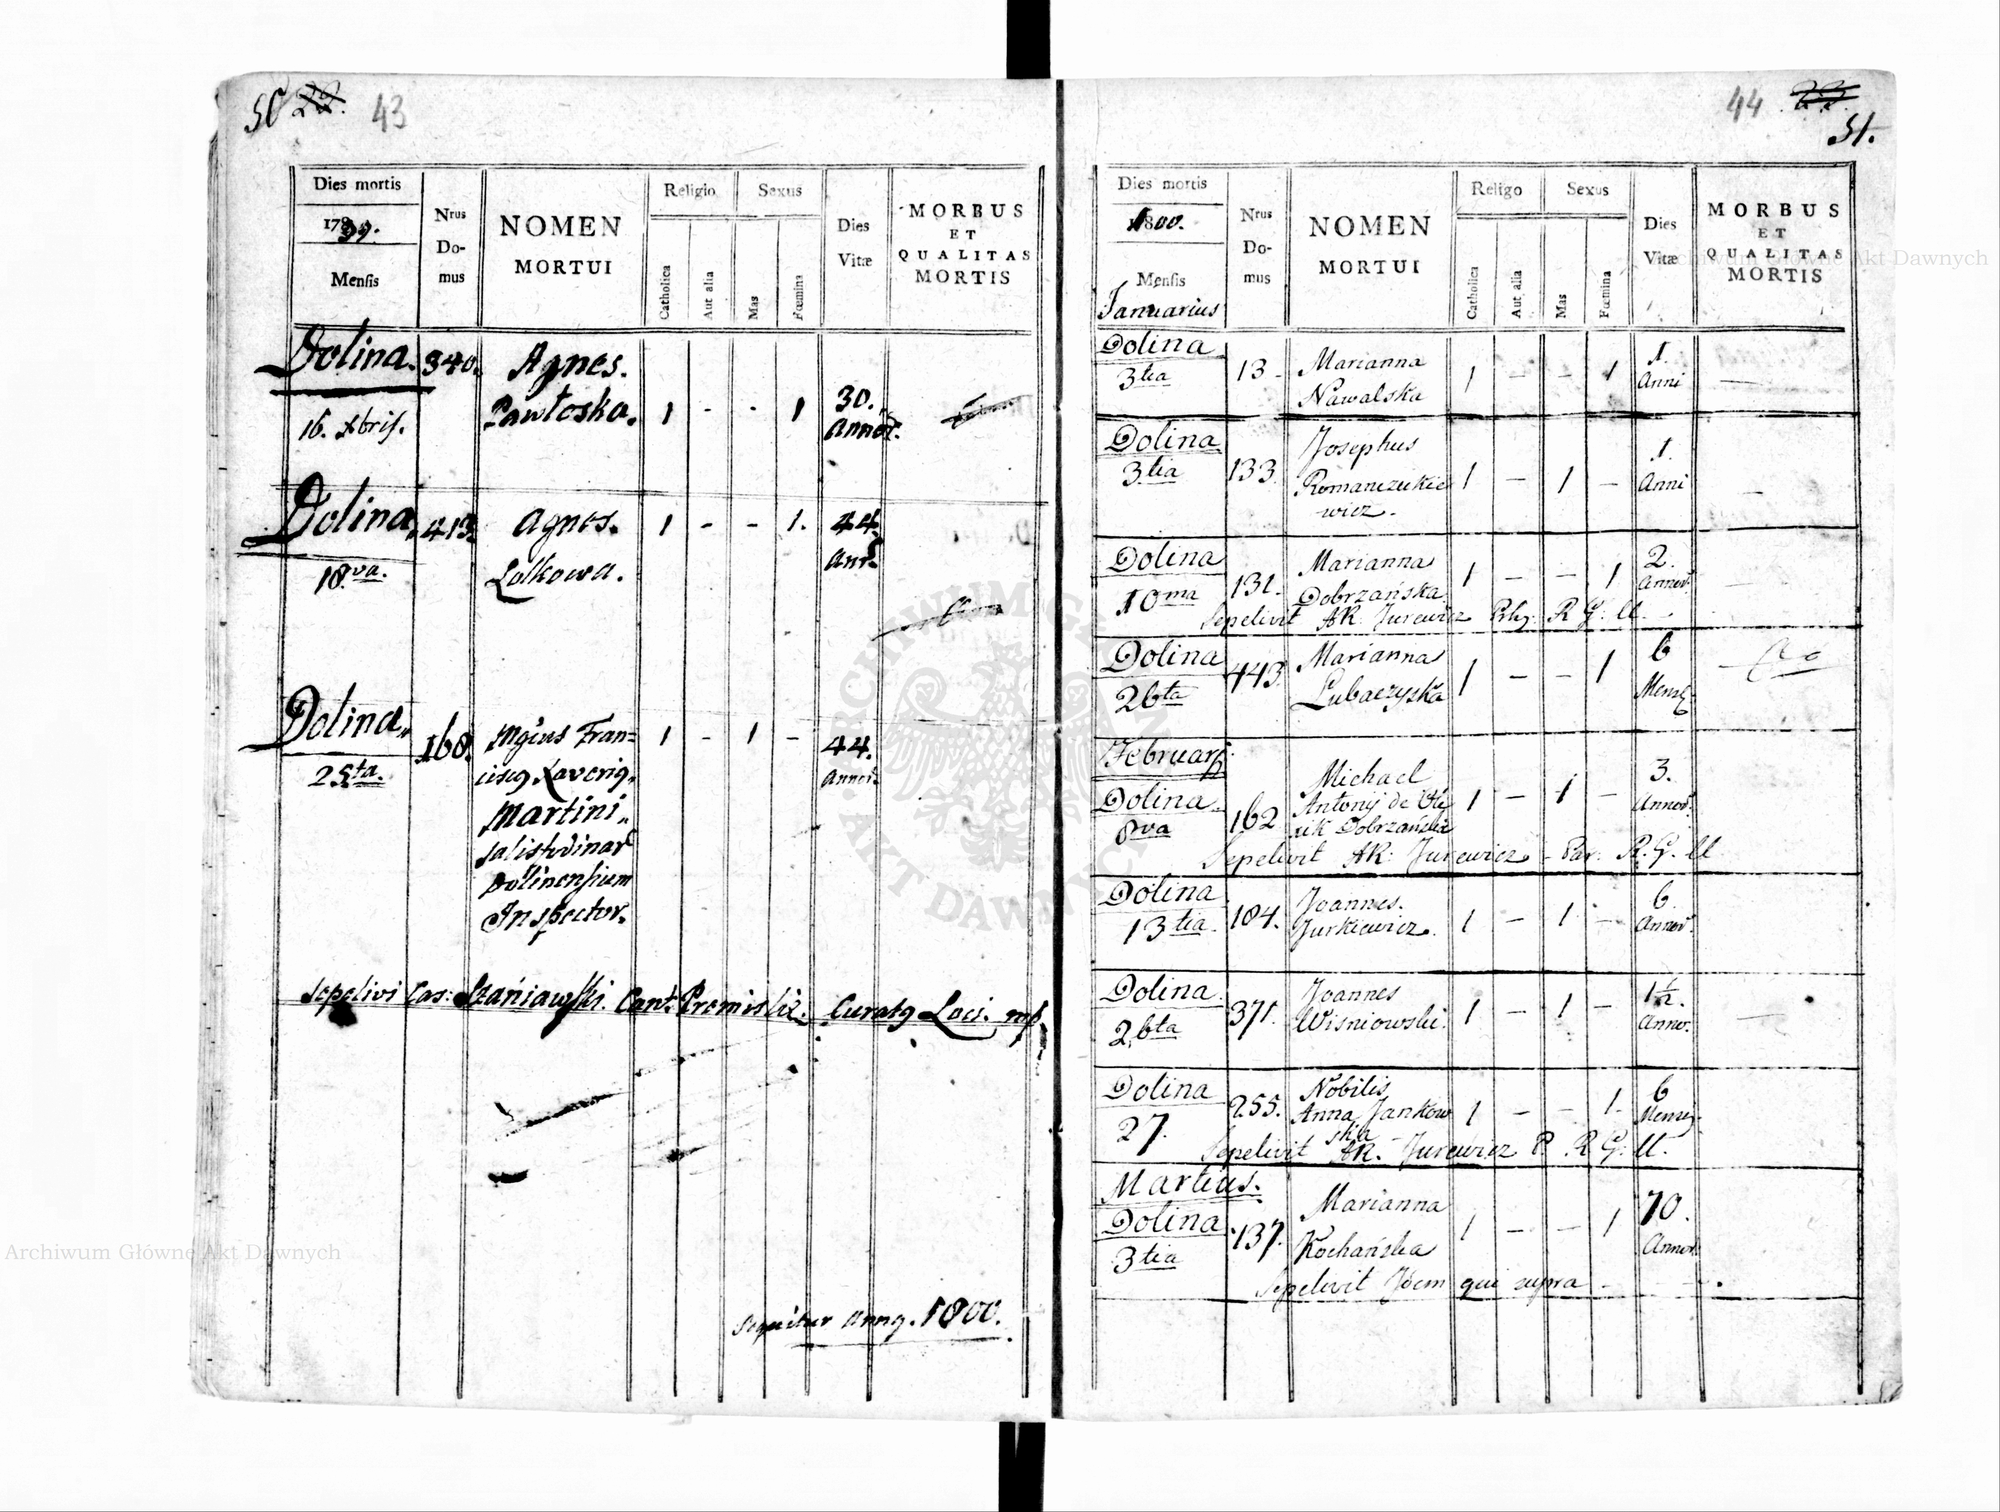 50 22. 43
Dies mortis
1799.
Mensis
Nrus
Do-
mus
NOMEN
MORTUI
Religio
Catholica
Aut alia
Sexus
Mas
Fœmina
Dies
Vitæ
MORBUS
ET
QUALITAS
MORTIS
Dolina. 340. Agnes.
16. Xbris. Pawłoska. 1 - - 1 30.
Annor.
Dolina, 413. Agnes. 1 - - 1. 44.
18.va. Lolkowa. Anr.
Dolina,, 168. Mgius Fran= 1 - 1 - 44.
25ta. ciscg Xaverig, Annor.
Martini,,
salistodinar
Dolinensium
Inspector.
Sepelivi Cas: Stańiawski. Cant: Premisliz. Curatg Loci. mp.
Sequitur Anng. 1800.
44 23.
51.
Dies mortis
1800.
Mensis
Januarius
Nrus
Do-
mus
NOMEN
MORTUI
Religo
Catholica
Aut alia
Sexus
Mas
Fœmina
Dies
Vitæ
MORBUS
ET
QUALITAS
MORTIS
Dolina 13 - Marianna 1 - - 1 1.
3tia Nawalska Anni -
Dolina 133. Josephus 1 - 1 - 1.
3tia Romanczukie Anni -
wicz.
Dolina 131. Marianna 1 - - 1 2.
10ma Dobrzańska Annor. -
Sepelivit AR. Jurewicz R G. U.
Dolina 443. Marianna 1 - - 1 6
26ta Lubaczyska Mens.
Februarij.
Dolina. 162 Michael 1 - 1 - 3.
8va Antonij de Annor.
Dobrzański
Sepelivit AR: Jurewicz - Par: R. G. U
Dolina 184. Joannes. 1 - 1 - 6.
13tia. Jurkiewicz. Annor.
Dolina 371. Joannes 1 - 1 - 1½.
26ta Wisniowski. Annor. -
Dolina 255. Nobilis 1 - - 1. 6
27. Anna Jankow Mens.
ska
Sepelivit AR. Jurewicz P. R G. U.
Martius.
Dolina 137. Marianna 1 - - 1 70.
3tia Kochańska Annor.
Sepelivit Idem qui supra -
Archiwum Główne Akt Dawnych
Archiwum Główne Akt Dawnych
ARCHIWUM GŁÓWNE AKT DAWNYCH